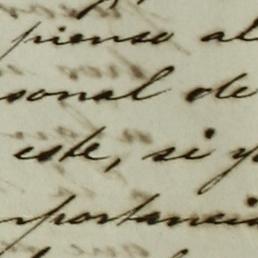 pienso al
sonal de
este, si y
portancia